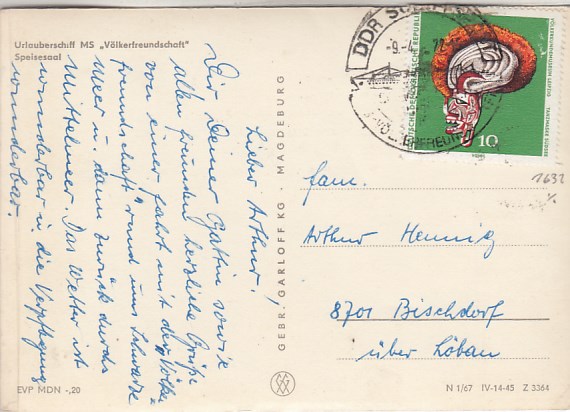 Urlauberschiff MS „Völkerfreundschaft"
Speisesaal
Lieber Arthur!
Dir Deiner Gattin sowie
allen Freunden herzliche Grüße
von einer Fahrt mit der „Völker-
freundschaft" rund ums Schwarze
Meer u. dann zurück durchs
Mittelmeer. Das Wetter ist
wunderbar u die Verpflegung
wunderbar.
GEBR. GARLOFF KG · MAGDEBURG
EVP MDN -,20
DDR
-9.-4. 72
DEUTSCHE DEMOKRATISCHE REPUBLIK
VÖLKERKUNDEMUSEUM LEIPZIG
10
1632
Fam.
Arthur Hennig
8701 Bischdorf
über Löbau
N 1/67 IV-14-45 Z 3364